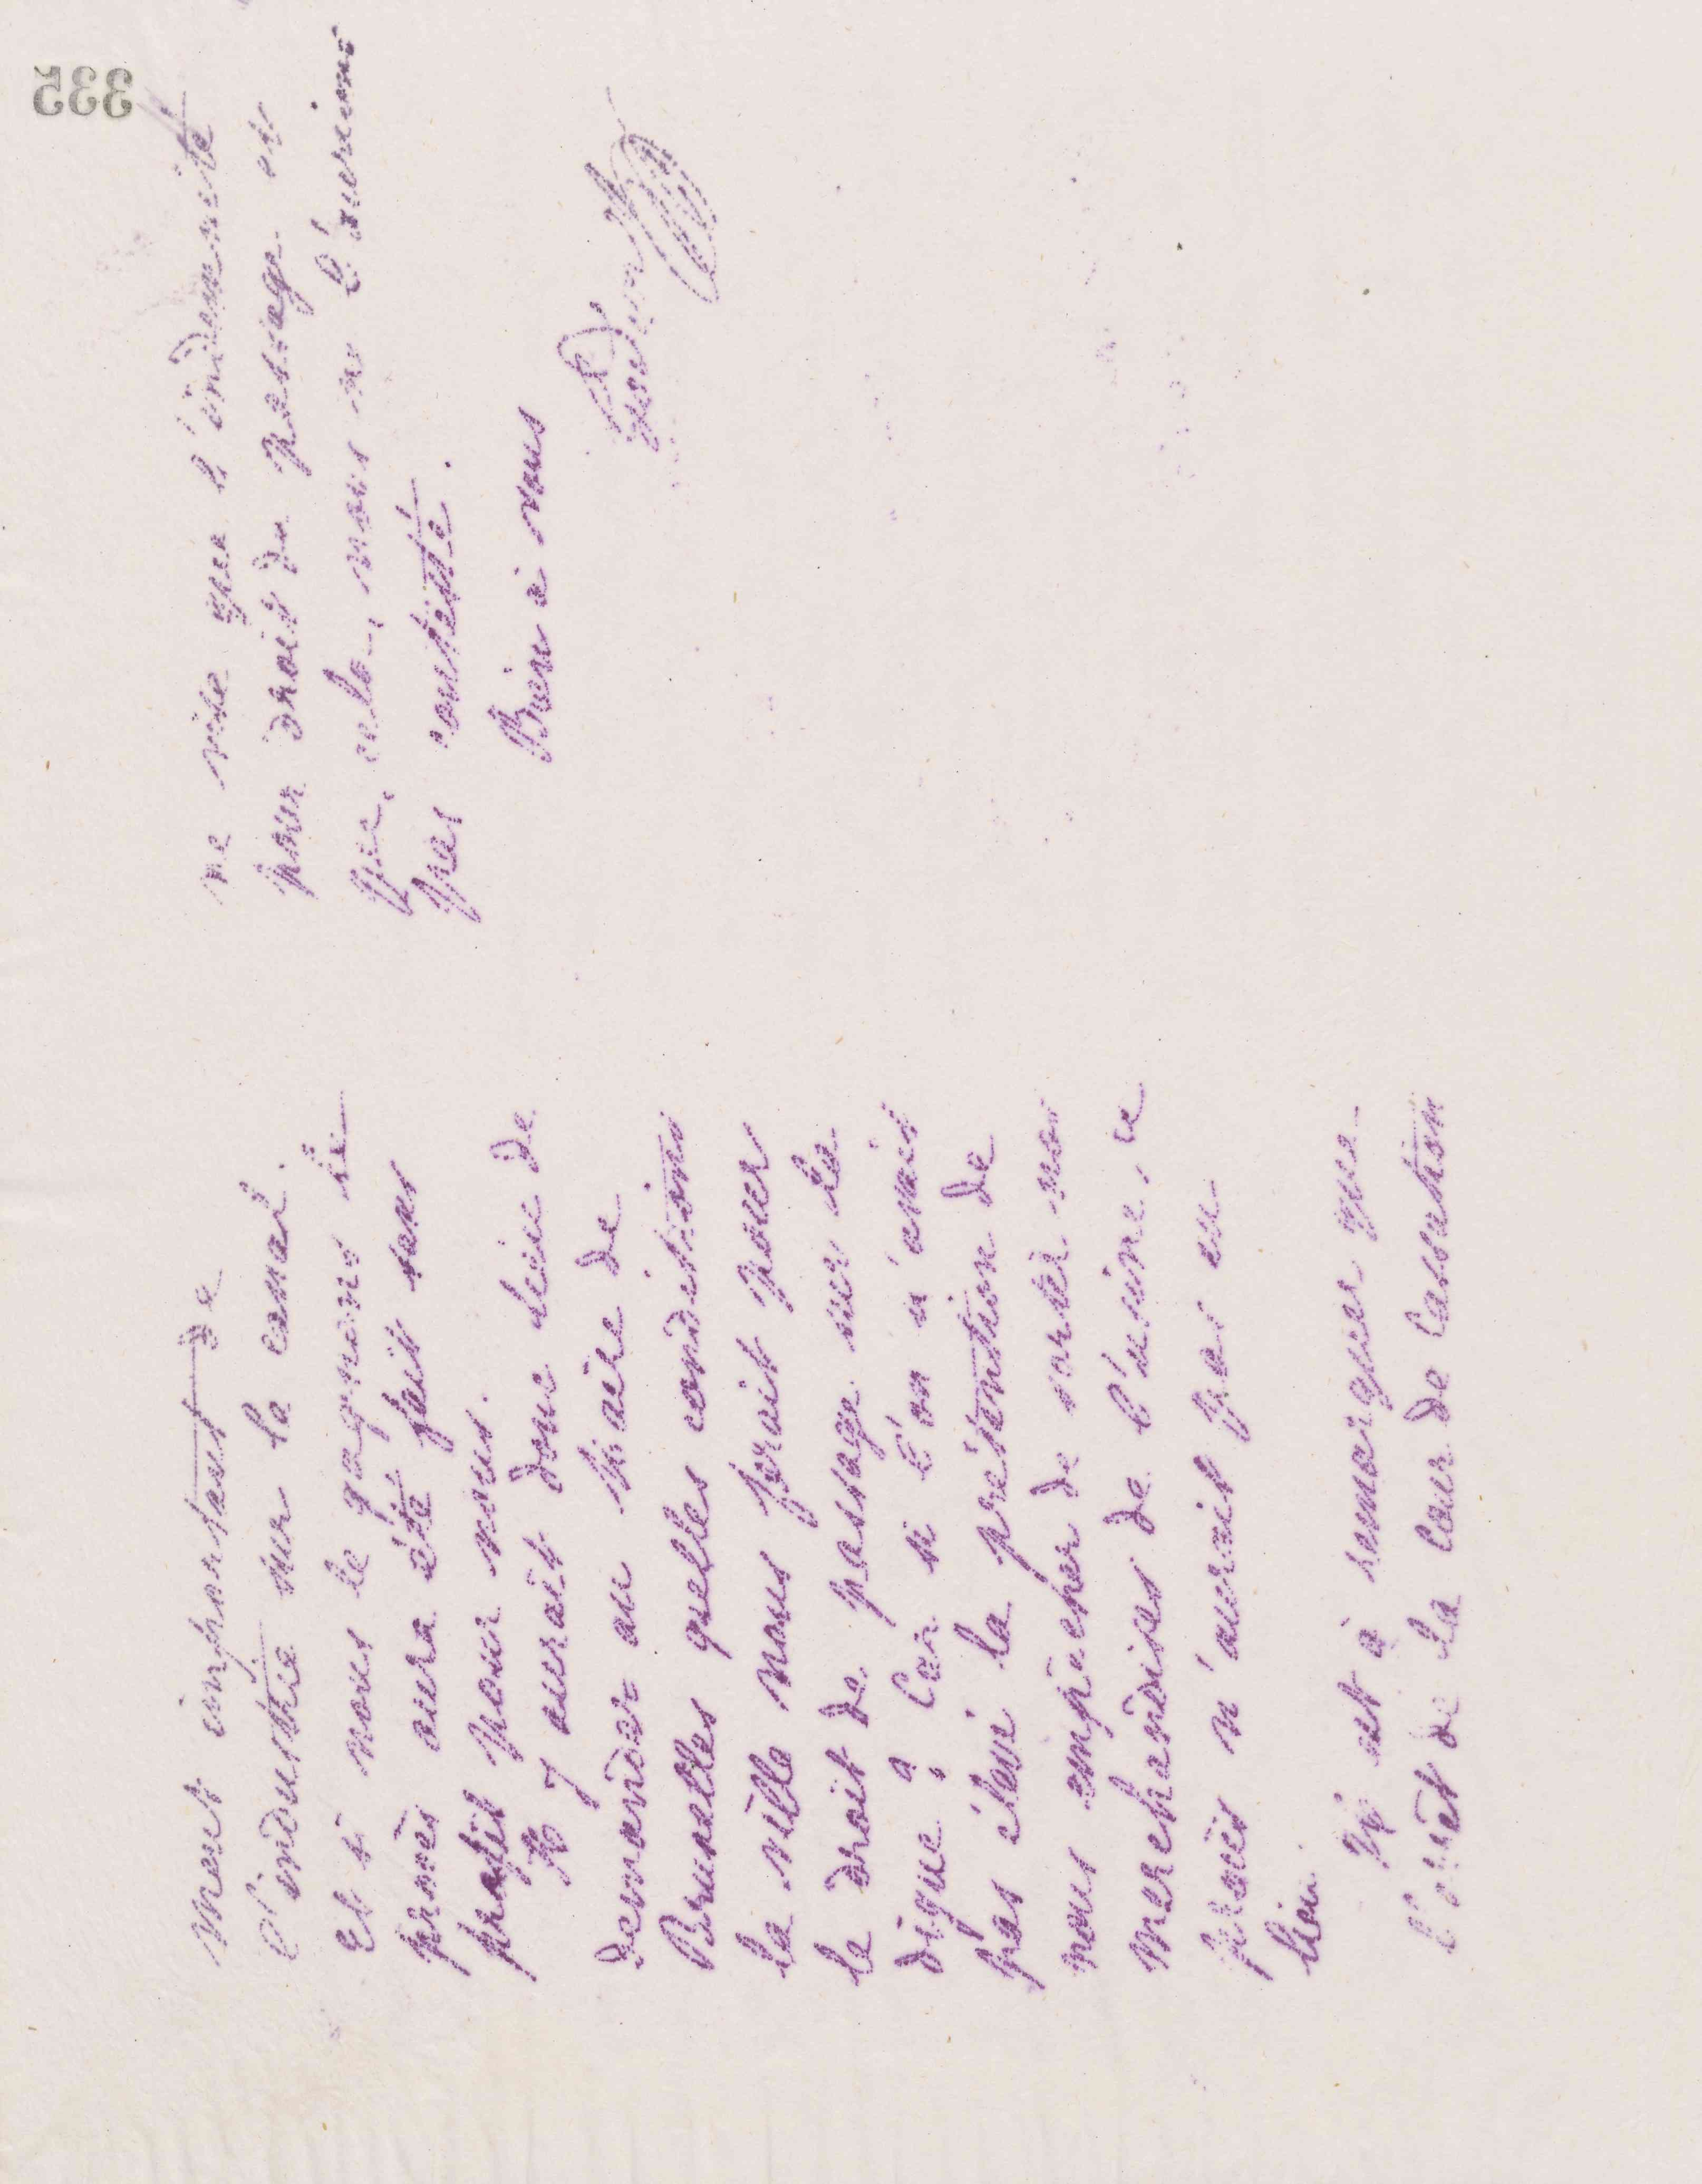 ment important de
l'industrie sur le canal.
Et si nous le gagnons le
procès aura été fait sans
profit pour nous.
Il y aurait donc lieu de
demander au Maire de
Bruxelles quelles conditions
la ville nous ferait pour
le droit de passage sur la
digue; Car si l'on n'avait
pas élevé la prétention de
nous empêcher de sortir nos
marchandises de l'usine, ce
procès n'aurait pas eu
lieu.
Il est à remarquer que
l'arrêt de la Cour de Cassation
ne vise que l'indemnité
pour droit de passage et
que cela, nous ne l'aurions
pas contesté.
Bien à vous
Godin
335